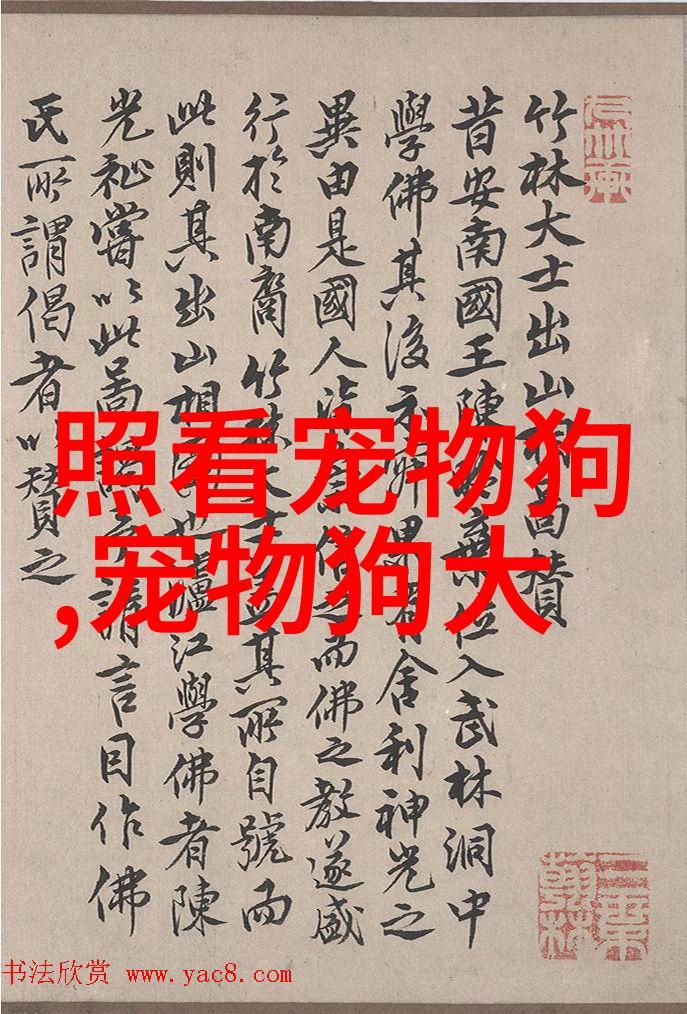 竹林大士出山
贊
昔安南國王陳
棄位入武林洞中
學佛其後
舍利神光之
異由是國人
而佛之教遂盛
行於南
竹林大士
其所自號而
此則其出山相
江學佛者陳
光祉嘗以此
請言因作佛
氏所謂偈者以贊之
照看宠物狗
,宠物狗大
书法欣赏 www.yac8.com